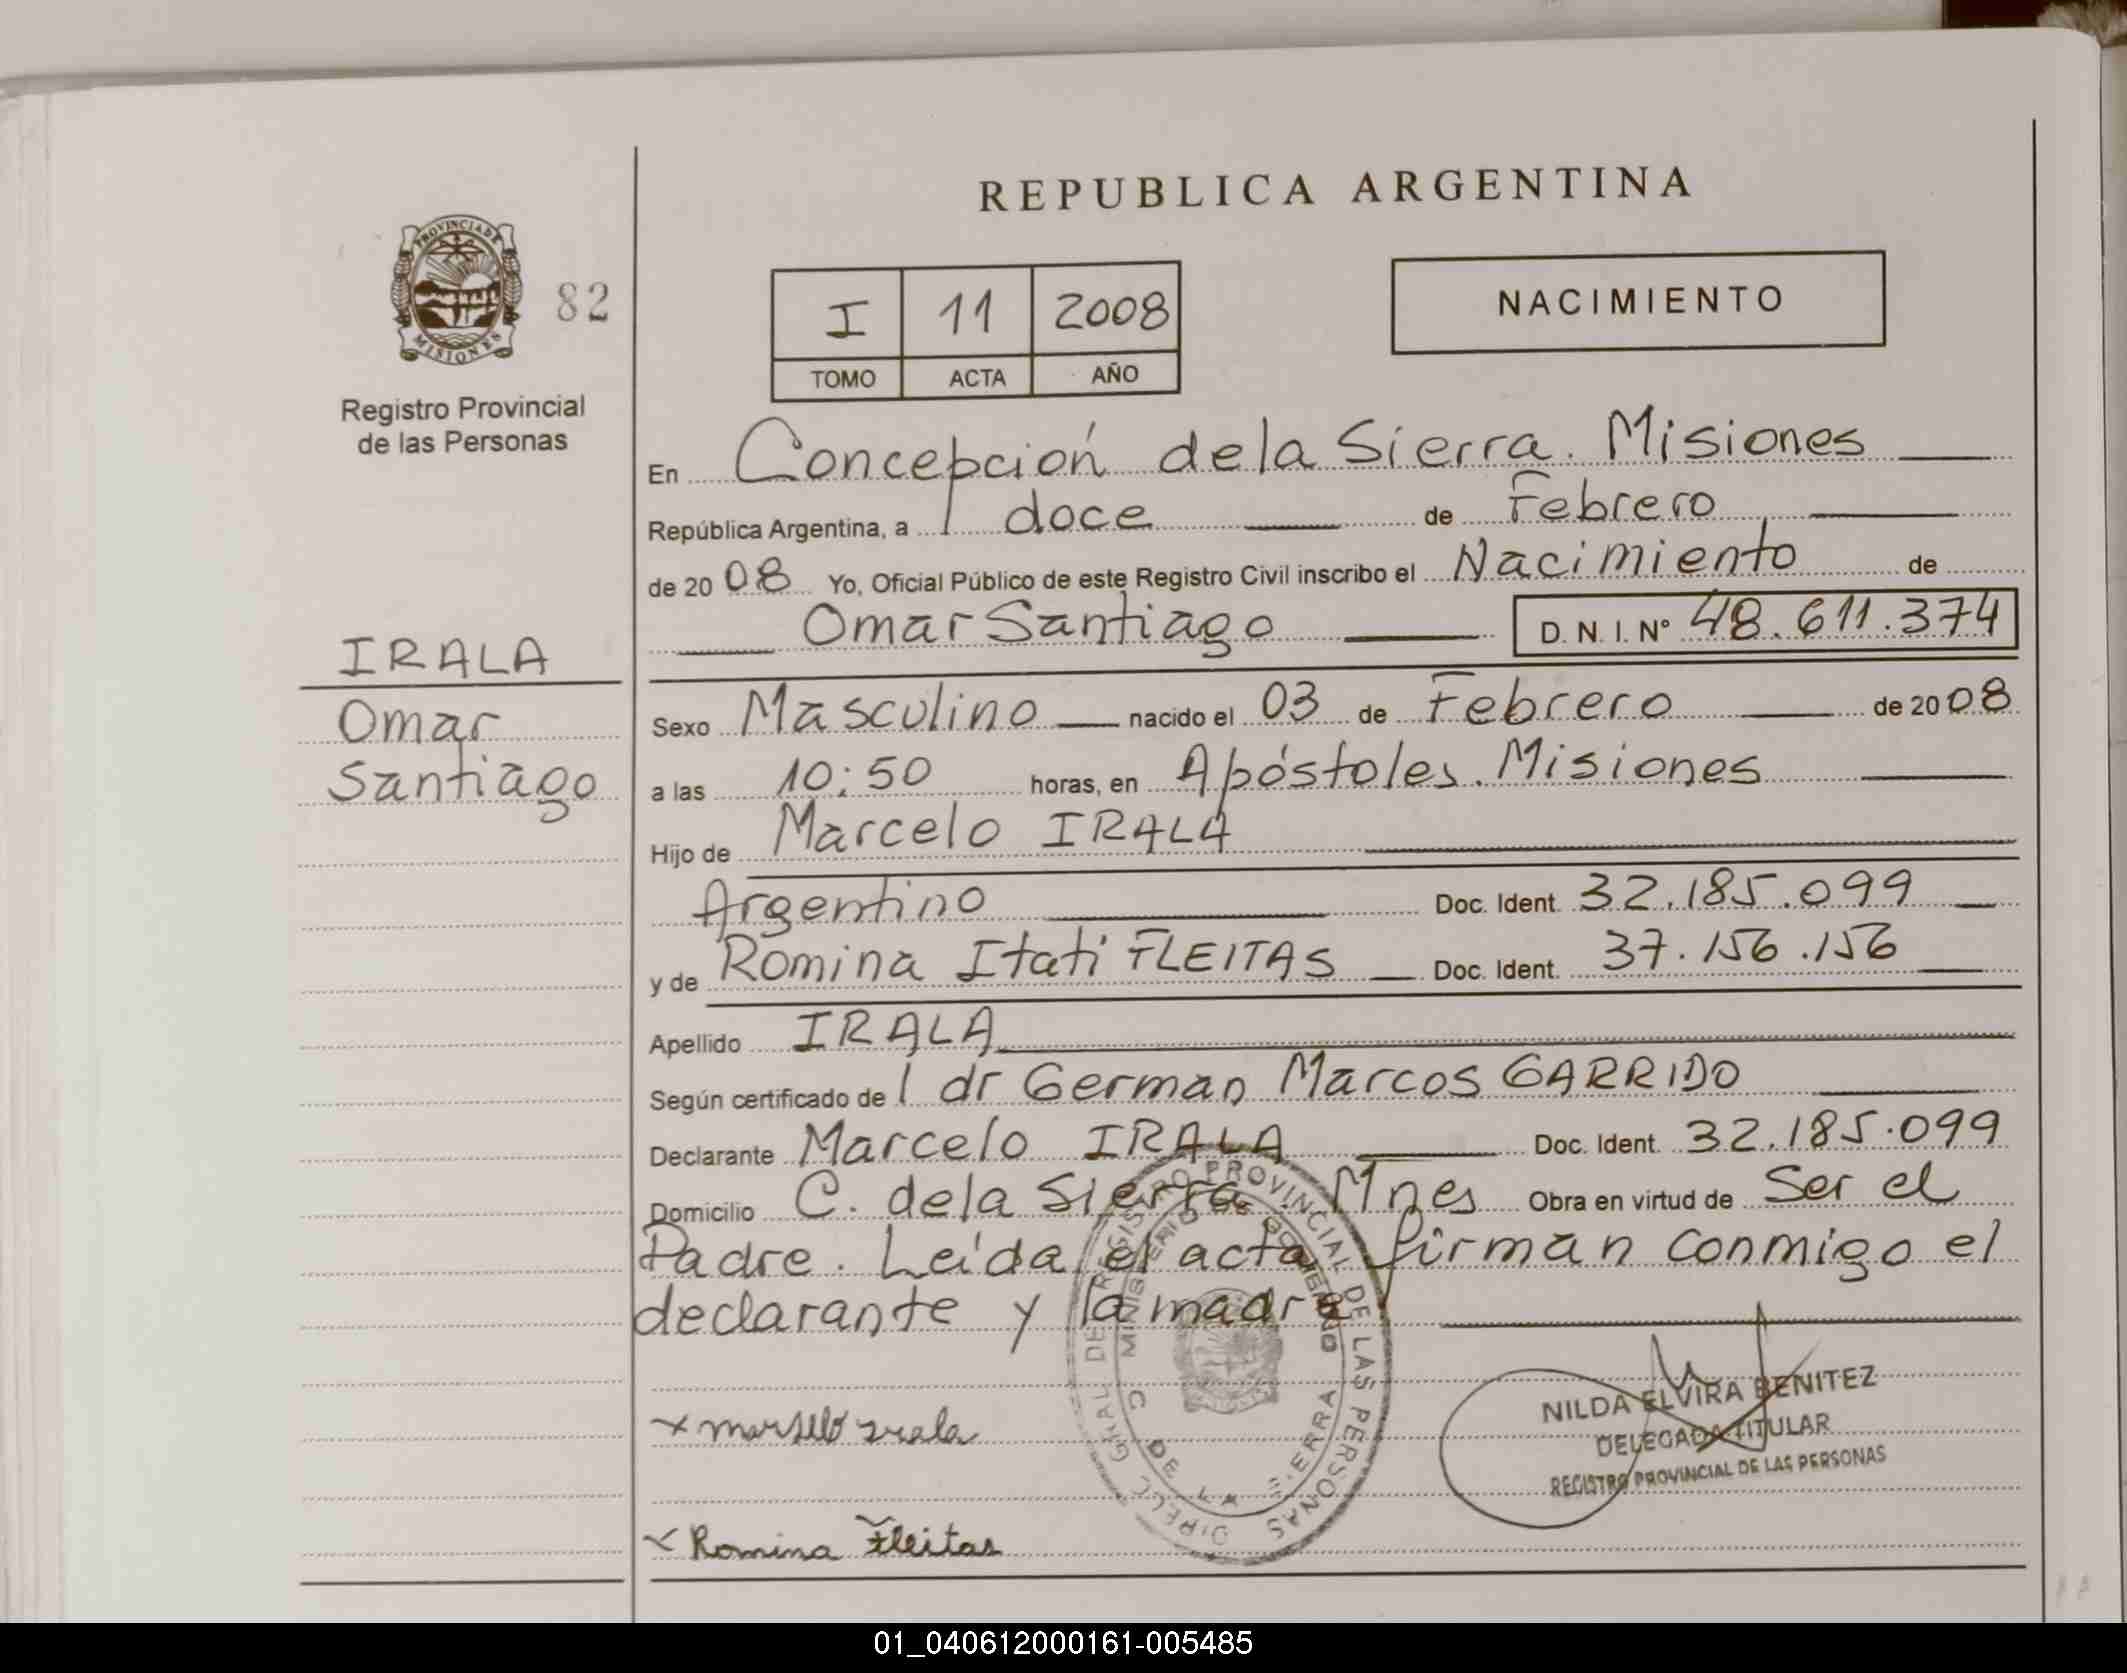 REPUBLICA ARGENTINA
PROVINCIA DE
MISIONES
82
Registro Provincial
de las Personas
I 11 2008
TOMO ACTA AÑO
NACIMIENTO
En Concepción de la Sierra. Misiones
República Argentina, a l doce de Febrero
de 20 08 Yo, Oficial Público de este Registro Civil inscribo el Nacimiento de
Omar Santiago D. N. I. Nº 48.611.374
IRALA
Omar
Santiago
Sexo Masculino nacido el 03 de Febrero de 20 08
a las 10:50 horas, en Apóstoles. Misiones
Hijo de Marcelo IRALA
Argentino Doc. Ident. 32.185.099
y de Romina Itati FLEITAS Doc. Ident. 37.156.156
Apellido IRALA
Según certificado de l dr German Marcos GARRIDO
Declarante Marcelo IRALA Doc. Ident. 32.185.099
Domicilio C. de la Sierra, Mnes Obra en virtud de Ser el
Padre. Leída el acta firman conmigo el
declarante y la madre
DIRECC GRAL DE REGISTRO PROVINCIAL DE LAS PERSONAS
MINISTERIO DE GOBIERNO
NILDA ELVIRA BENITEZ
DELEGADA TITULAR
REGISTRO PROVINCIAL DE LAS PERSONAS
x marselo irala
x Romina Fleitas
01_040612000161-005485